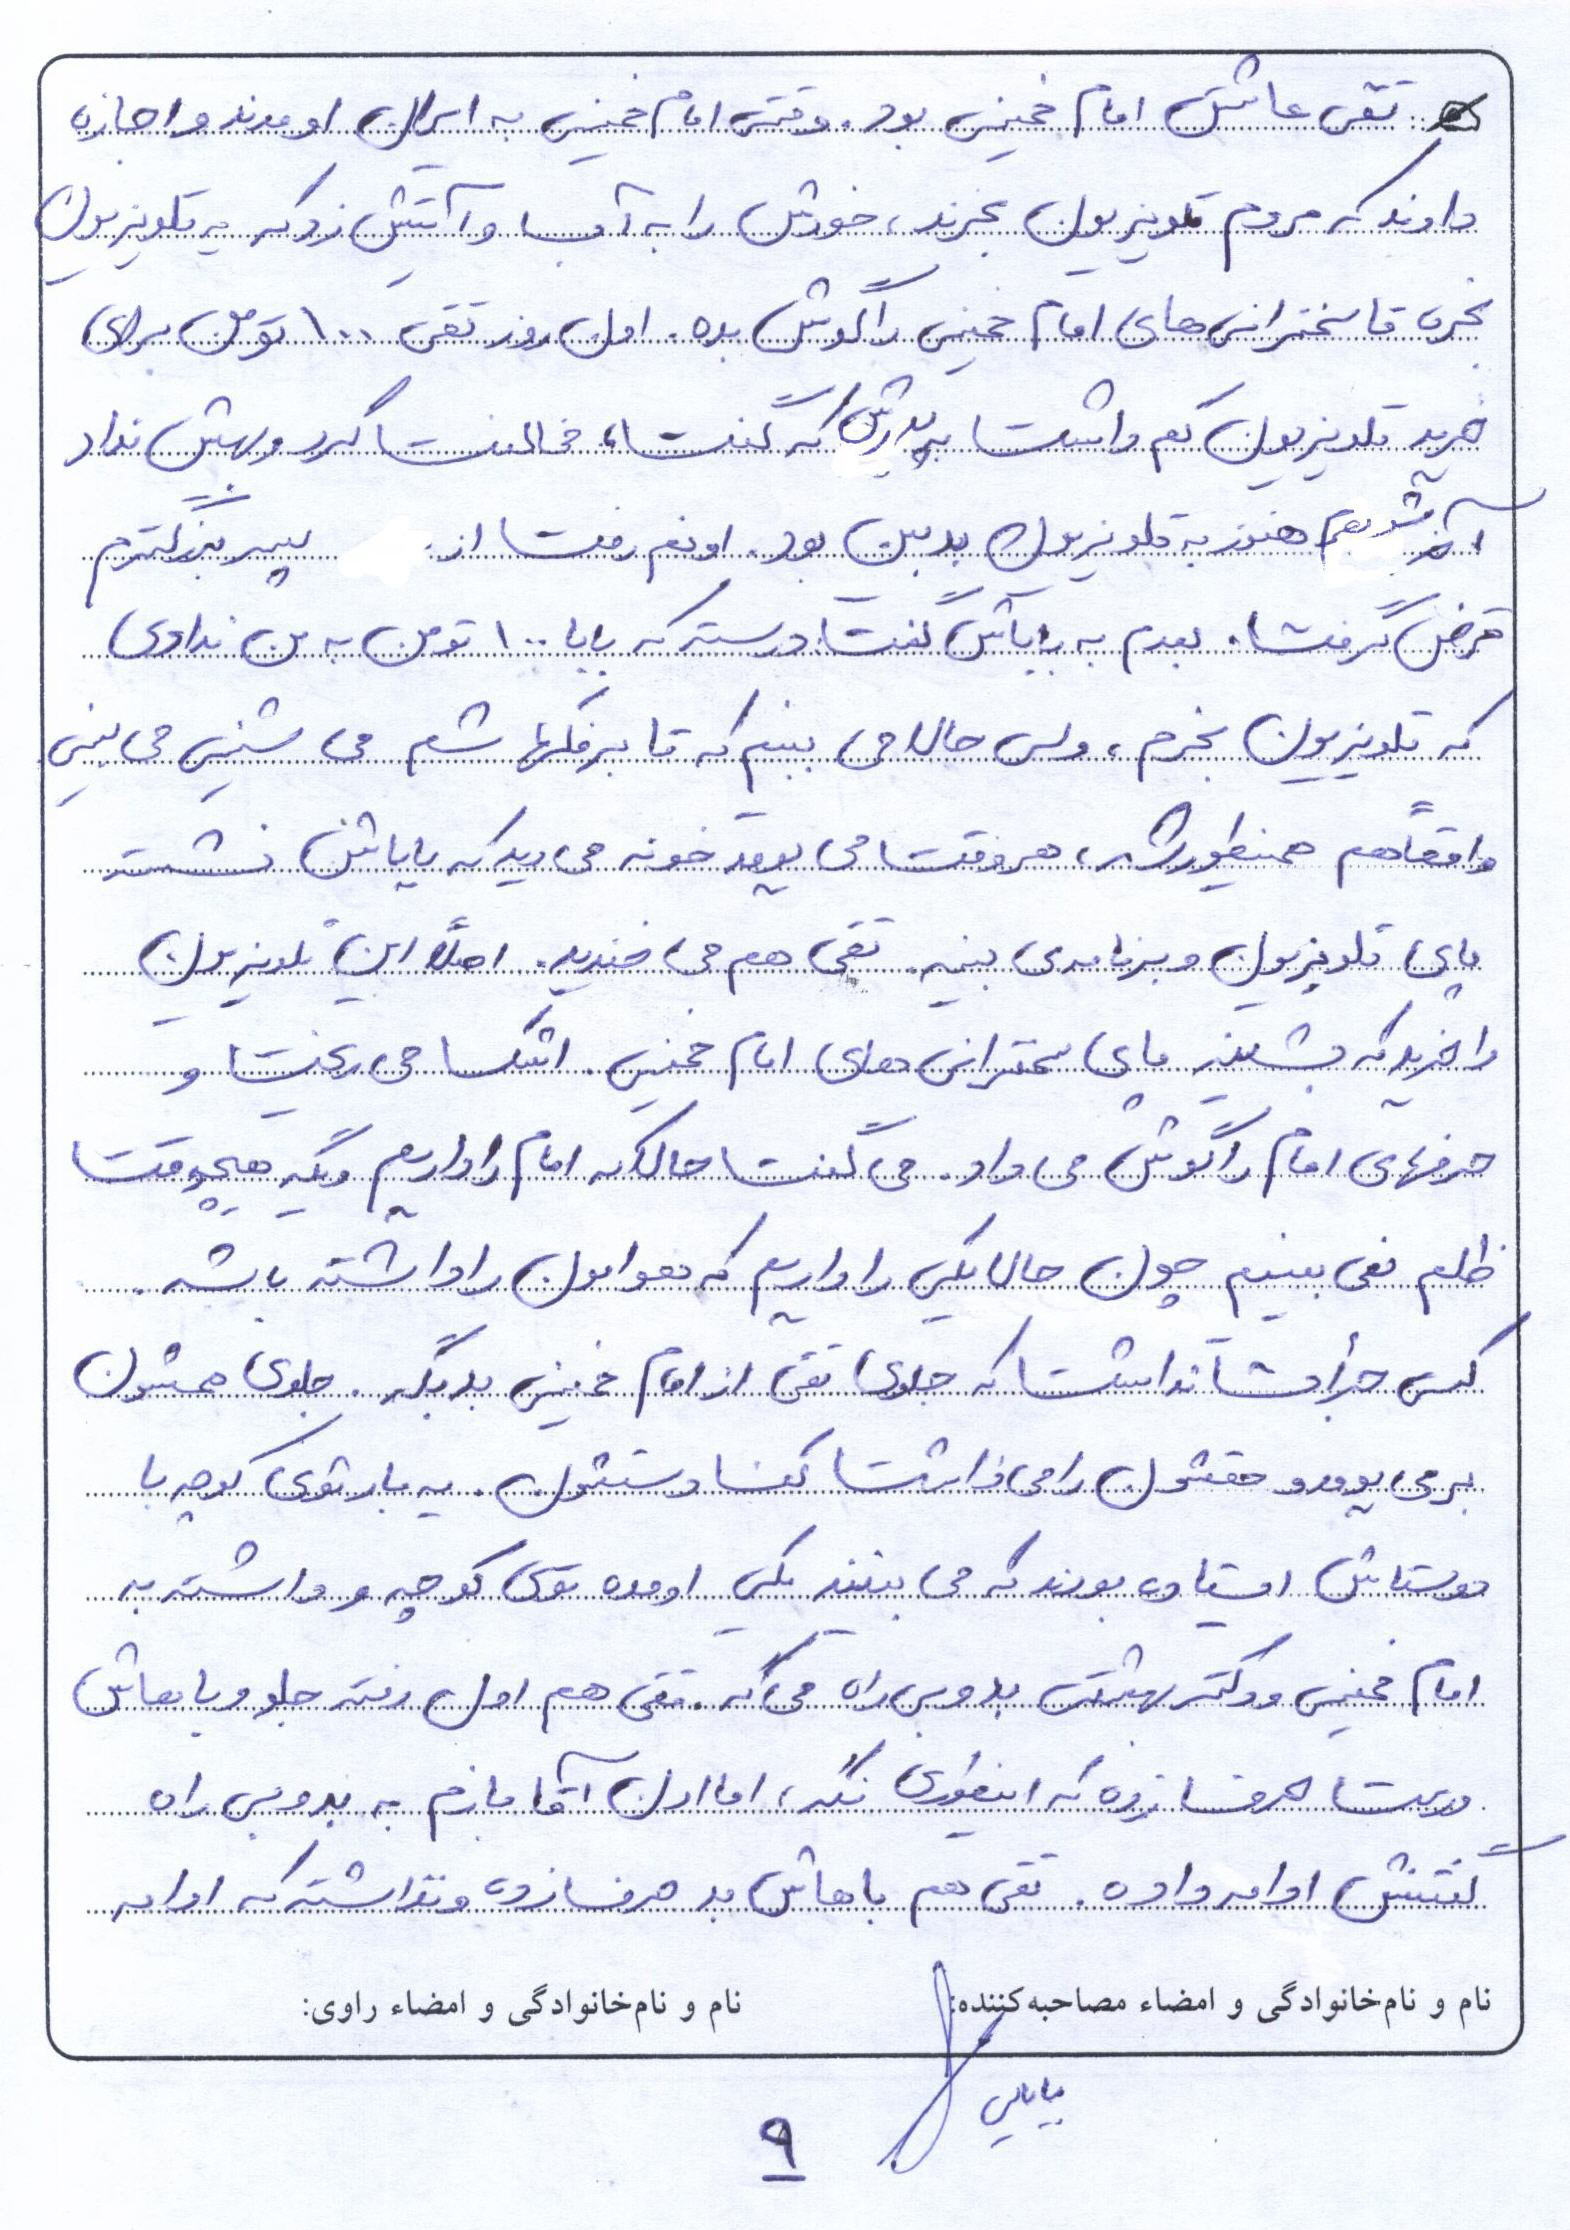 تقی عاشق امام خمینی بود. وقتی امام خمینی به ایران اومدند و اجازه
دادند که مردم تلویزیون بخرند، خودش را به آب و آتیش زد که یه تلویزیون
بخره تا سخنرانی‌های امام خمینی را گوش بده. اول روز تقی ۱۰۰ تومن برای
خرید تلویزیون کم داشت به پدرش که گفت، مخالفت کرد و بهش نداد
آخر هنوز به تلویزیون بدبین بود. اونم رفت از پسر بزرگترم
قرض گرفت. بعدم به باباش گفت درسته که بابا ۱۰۰ تومن به من ندادی
که تلویزیون بخرم، ولی حالا می بینم که تا برفکها شم می شینی می بینی
واقعاً هم همینطور شد، هر وقت می یومد خونه می دید که باباش نشسته
پای تلویزیون و برنامه می بینه. تقی هم می خندید. اصلاً این تلویزیون
را خرید که بشینه پای سخنرانی های امام خمینی. اشک می ریخت و
حرفهای امام را گوش می داد. می گفت حالا که امام را داریم دیگه هیچوقت
ظلم نمی بینیم چون حالا یکی را داریم که هوامون را داشته باشه.
کسی جرأت نداشت که جلوی تقی از امام خمینی بد بگه. جلوی همشون
برمی یومد و حقشون را می ذاشت کف دستشون. یه بار توی کوچه با
دوستاش ایستاده بودند که می بینند یکی اومده توی کوچه و داشته به
امام خمینی و دکتر بهشتی بد و بی راه می گه. تقی هم اول رفته جلو و باهاش
درست حرف زده که اینطوری نگه، اما اون آقا بازم به بد و بی راه
گفتنش ادامه داده. تقی هم باهاش بد حرف زده و نذاشته که ادامه
نام و نام‌خانوادگی و امضاء مصاحبه‌کننده:
نام و نام‌خانوادگی و امضاء راوی:
بابایی
۹